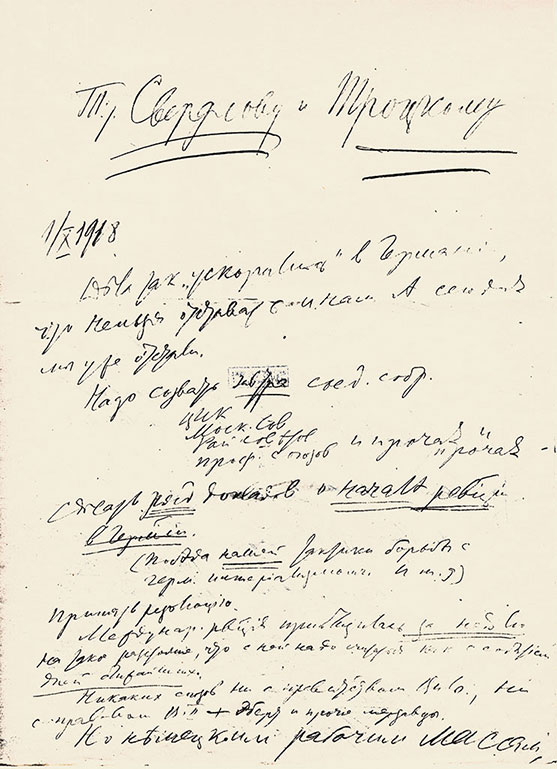 Тт. Свердлову и Троцкому
1/X 1918
Дела так „ускорились" в Германии,
что нельзя отставать и нам. А сегодня
мы уже отстали.
Надо созвать завтра соед. собр.
ЦИК
Моск. Сов
Рай советов
Проф. союзов и прочая и прочая
Сделать ряд докладов о начале рев-ции
в Германии.
(Победа нашей тактики борьбы с
герм. империализмом. И т. д.)
Принять резолюцию.
Междунар. рев-ция приблизилась за неделю
на такое расстояние, что с ней надо считаться как с событием
дней ближайших.
Никаких союзов ни с правительством Вильг., ни
с правит. В. II + Эберт и прочие мерзавцы.
Но немецким рабочим массам,